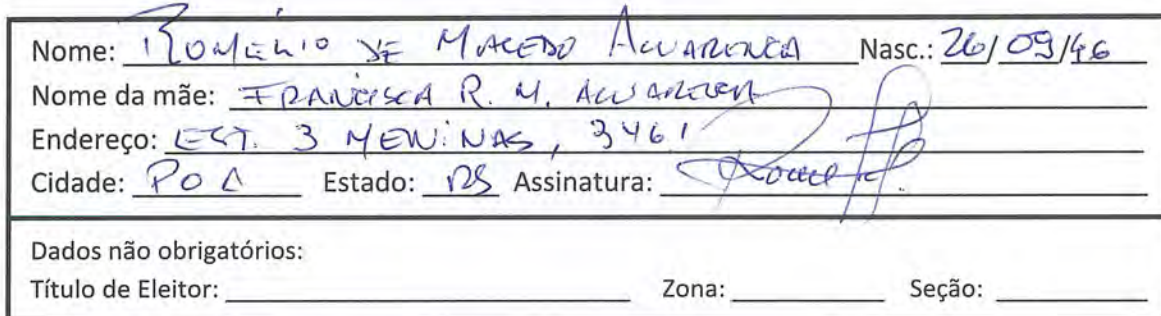 Nome: ROMÉRIO DE MACEDO ALVARENGA Nasc.: 26/09/46
Nome da mãe: FRANCISCA R. M. ALVARENGA
Endereço: EST. 3 MENINAS, 3461
Cidade: POA Estado: RS Assinatura:
Dados não obrigatórios:
Título de Eleitor: Zona: Seção: